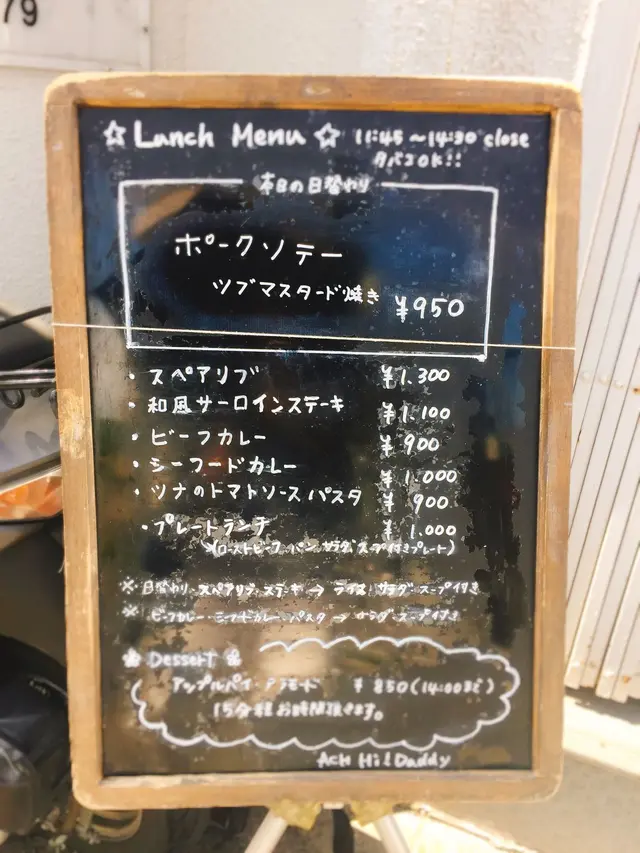 79
☆Lunch Menu☆ 11:45～14:30 close
タバコOK!!
本日の日替わり
ポークソテー
ツブマスタード焼き ¥950
・スペアリブ ¥1.300
・和風サーロインステーキ ¥1.100
・ビーフカレー ¥900
・シーフードカレー ¥1.000
・ツナのトマトソースパスタ ¥900
・プレートランチ ¥1.000
(ローストビーフ、パン、サラダ、スープ付きプレート)
※日替わり・スペアリブ・ステーキ→ライス・サラダ・スープ付き
※ビーフカレー・シーフードカレー・パスタ→サラダ・スープ付き
Dessert
アップルパイ・アラモード ¥850(14:00まで)
15分程お時間頂きます。
Ack Hi! Daddy